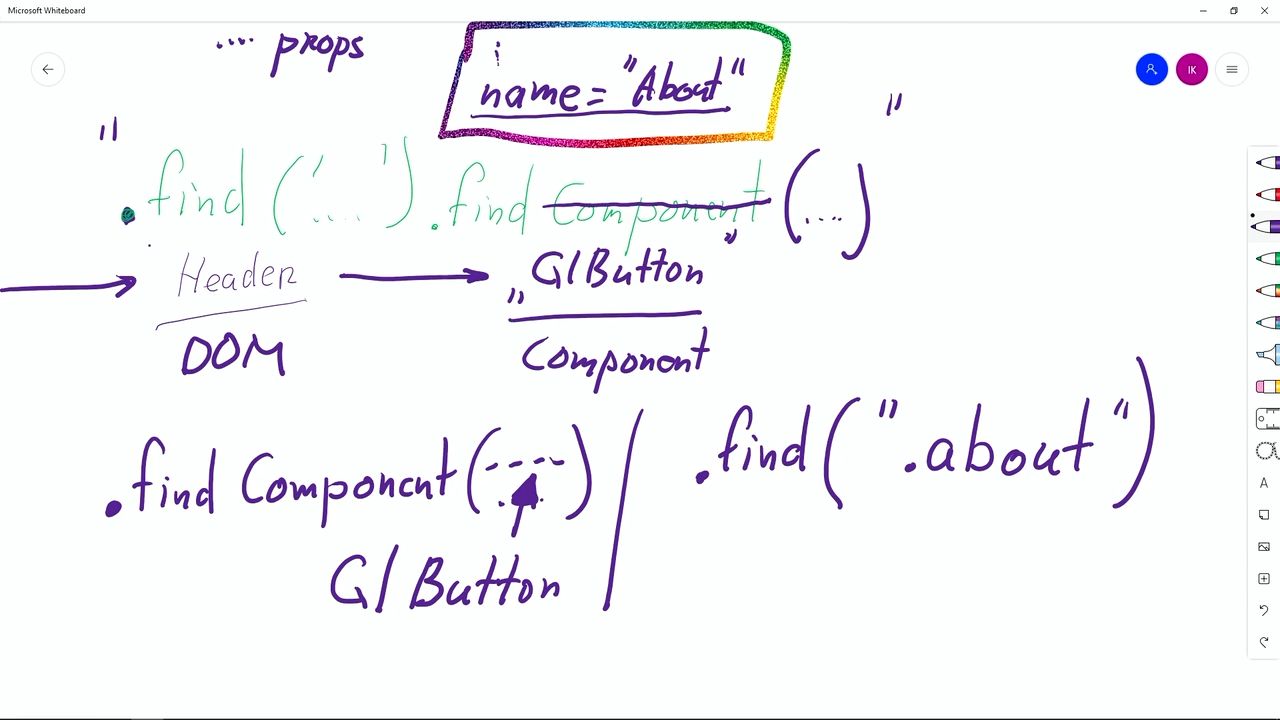 Microsoft Whiteboard
.... props
name = "About"
IK
" "
.find('....').find Component (....)
Header
"GlButton"
DOM
Component
.find Component(----)
.find(".about")
GlButton
A